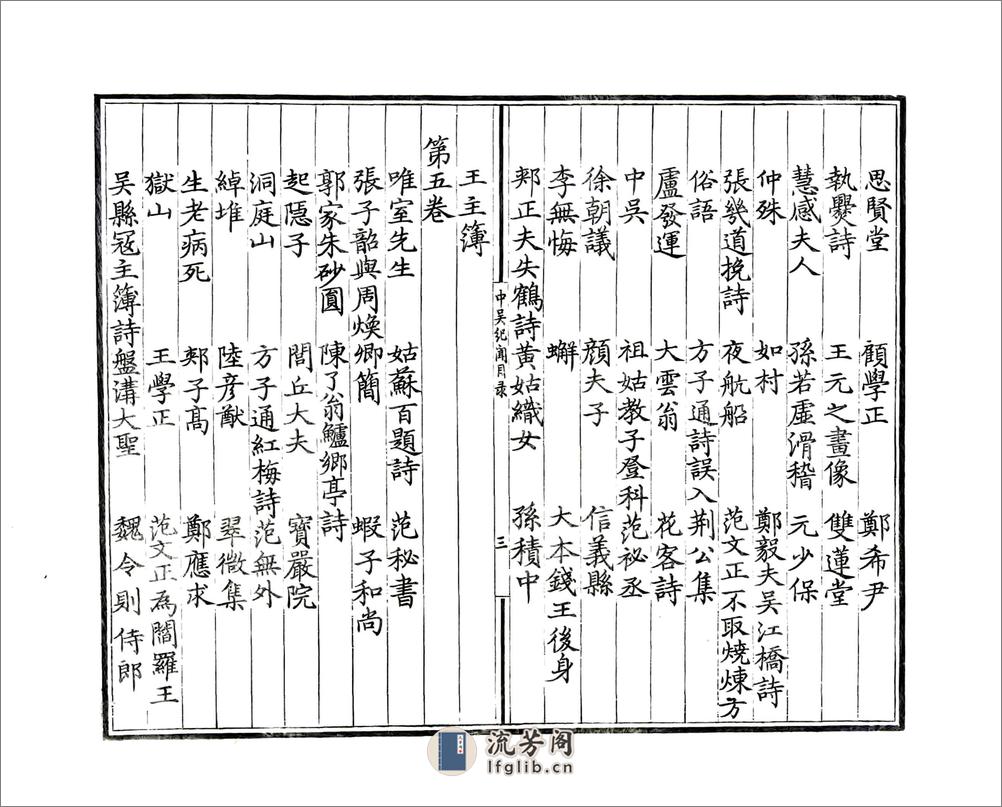 思賢堂　顧學正　鄭希尹
執爨詩　王元之畫像　雙蓮堂
慧感夫人　孫若虛滑稽　元少保
仲殊　如村　鄭毅夫吳江橋詩
張幾道挽詩　夜航船　范文正不取燒煉方
俗語　方子通詩誤入荆公集
盧發運　大雲翁　花客詩
中吳　祖姑教子登科　范祕丞
徐朝議　顔夫子　信義縣
李無悔　蠏　大本錢王後身
郟正夫失鶴詩　黃姑織女　孫積中
中吳紀聞目录　三
王主簿
第五卷
唯室先生　姑蘇百題詩　范秘書
張子韶與周煥卿簡　蝦子和尚
郭家朱砂圓　陳了翁鱸鄉亭詩
起隱子　閭丘大夫　寶嚴院
洞庭山　方子通紅梅詩　范無外
綽堆　陸彦猷　翠微集
生老病死　郟子高　鄭應求
獄山　王學正　范文正為閻羅王
吳縣冦主簿詩　盤溝大聖　魏令則侍郎
流芳阁
lfglib.cn